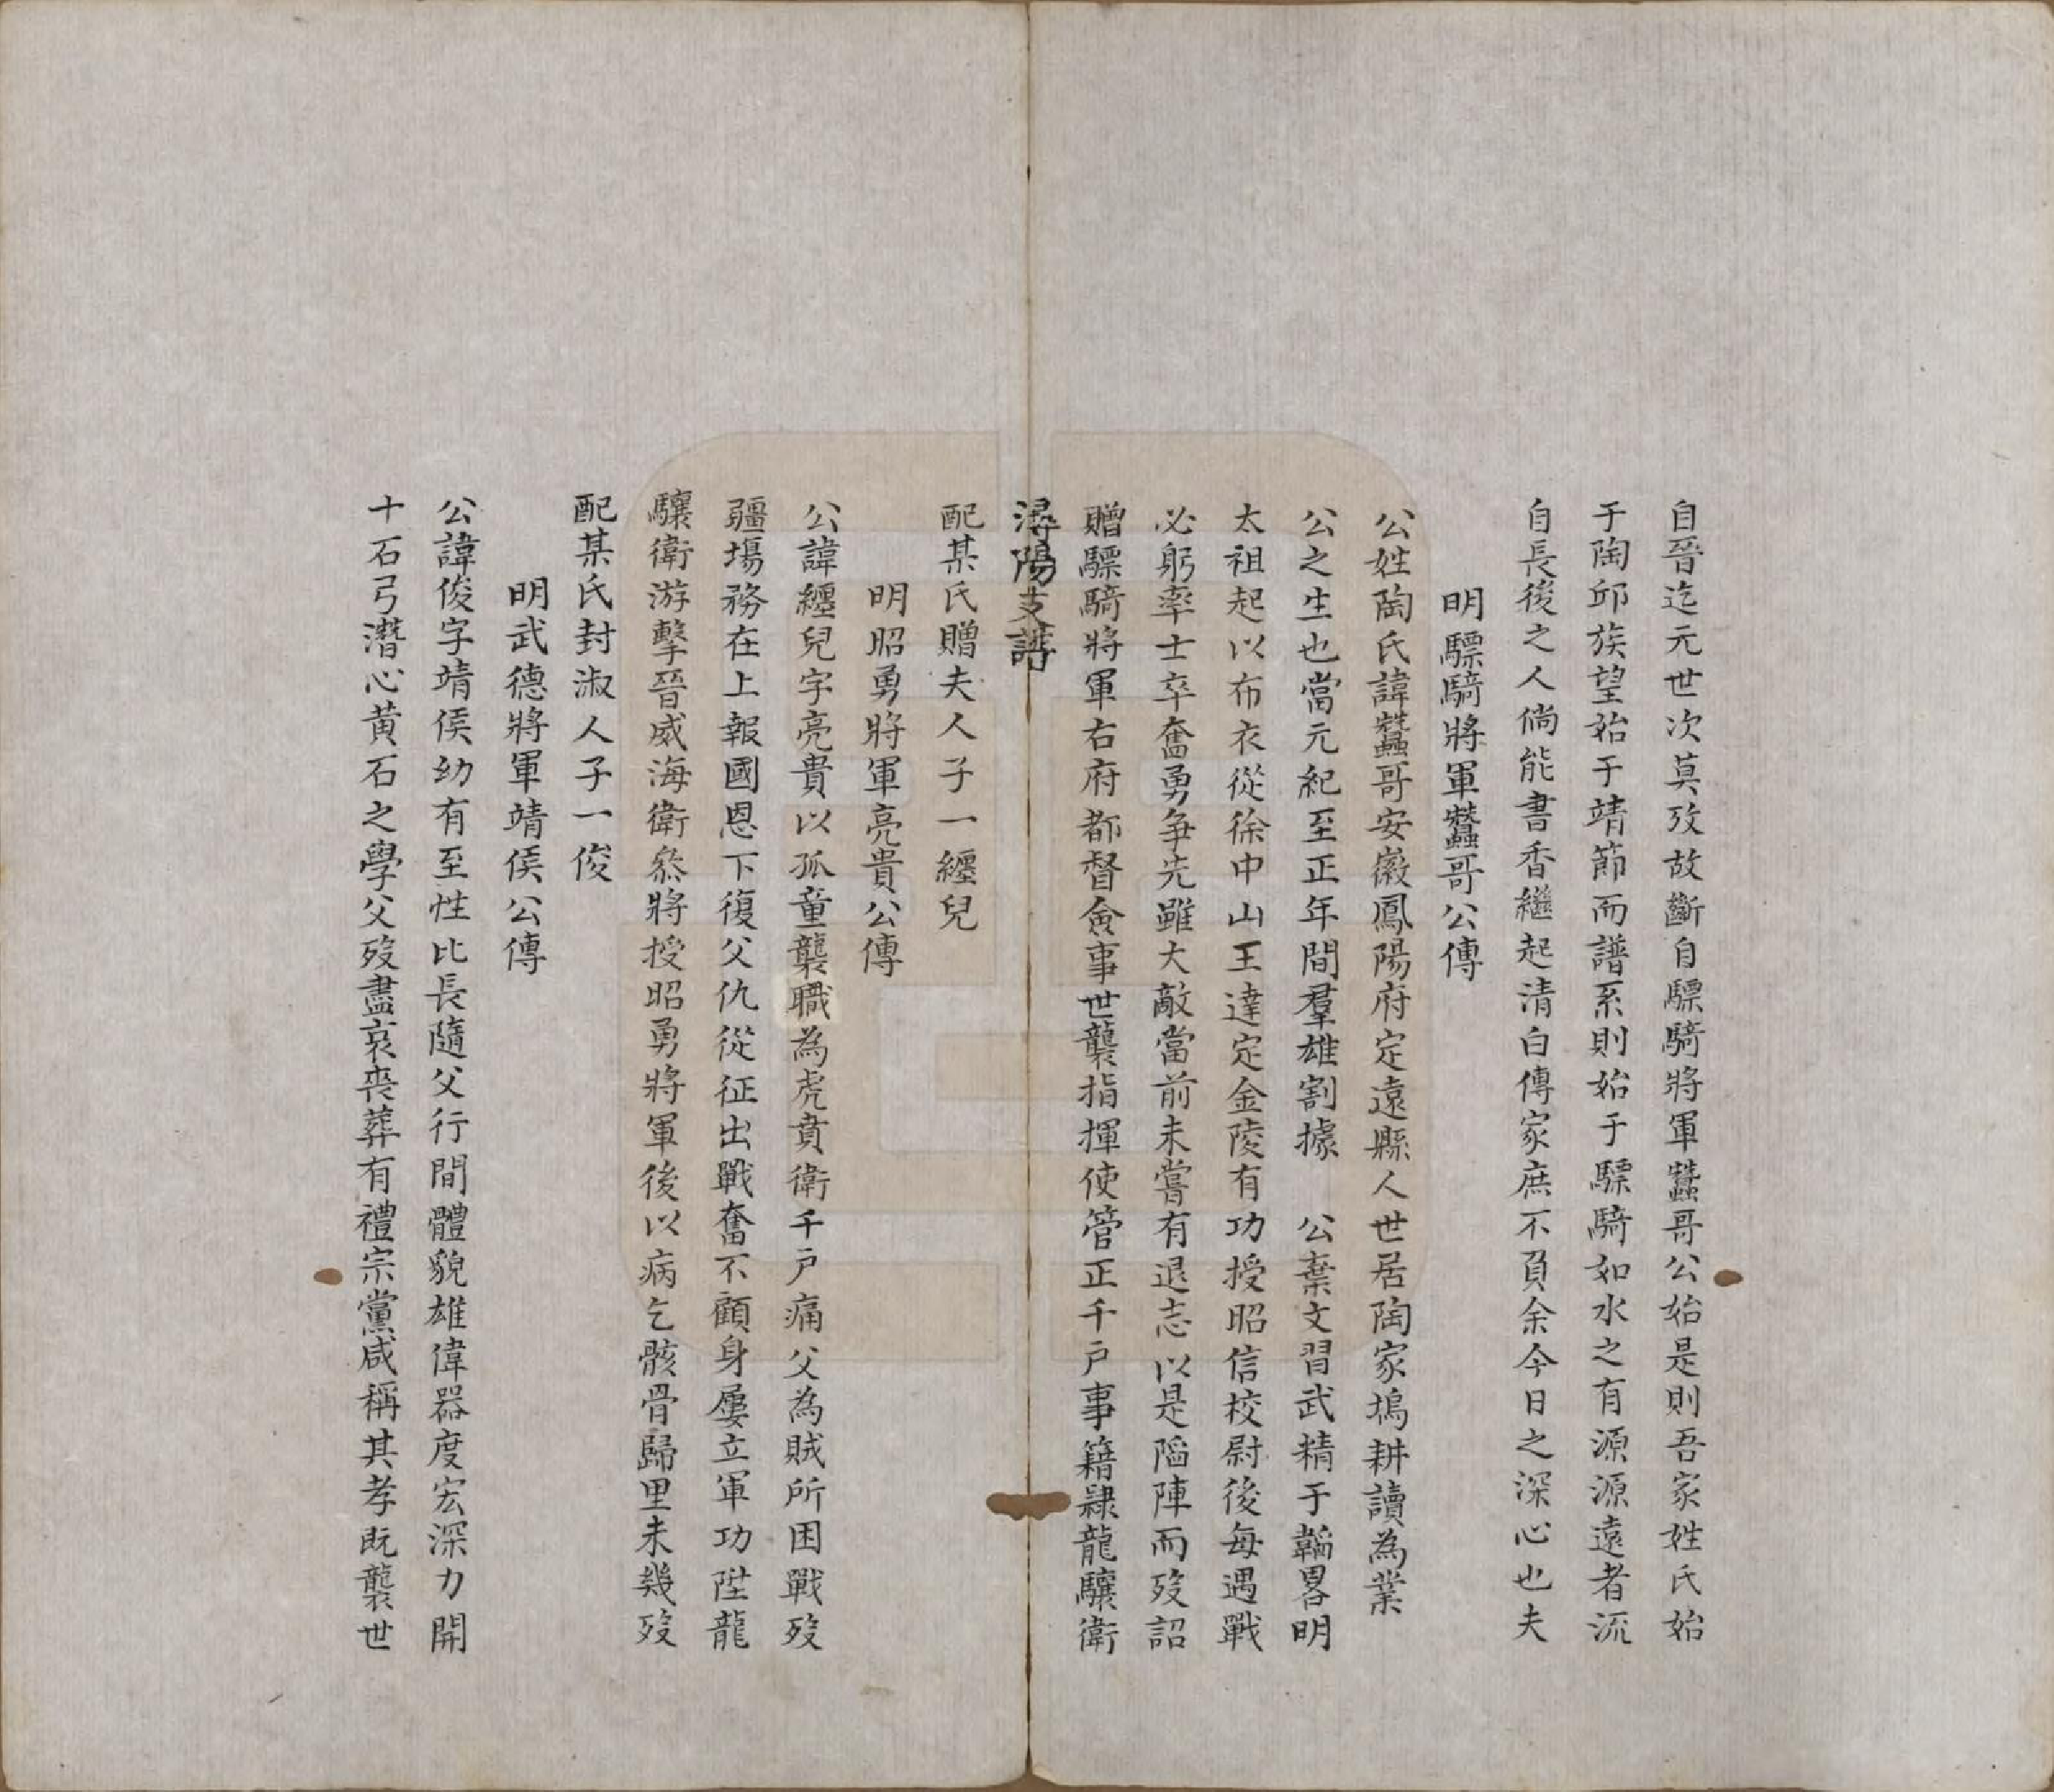 自晉迄元世次莫攷故斷自驃騎將軍蠶哥公始是則吾家姓氏始
于陶邱族望始于靖節而譜系則始于驃騎如水之有源源遠者流
自長後之人倘能書香繼起清白傳家庶不負余今日之深心也夫
明驃騎將軍蠶哥公傳
公姓陶氏諱蠶哥安徽鳳陽府定遠縣人世居陶家塢耕讀為業
公之生也當元紀至正年間羣雄割據 公棄文習武精于韜畧明
太祖起以布衣從徐中山王達定金陵有功授昭信校尉後每遇戰
必躬率士卒奮勇争先雖大敵當前未嘗有退志以是陷陣而歿詔
贈驃騎將軍右府都督僉事世襲指揮使管正千戶事籍隸龍驤衛
潯陽支譜
配某氏贈夫人子一纏兒
明昭勇將軍亮貴公傳
公諱纏兒字亮貴以孤童襲職為虎賁衛千戶痛父為賊所困戰歿
疆場務在上報國恩下復父仇從征出戰奮不顧身屢立軍功陞龍
驤衛游擊晉威海衛叅將授昭勇將軍後以病乞骸骨歸里未幾歿
配某氏封淑人子一俊
明武德將軍靖侯公傳
公諱俊字靖侯幼有至性比長隨父行間體貌雄偉器度宏深力開
十石弓潛心黃石之學父歿盡哀喪葬有禮宗黨咸稱其孝既襲世